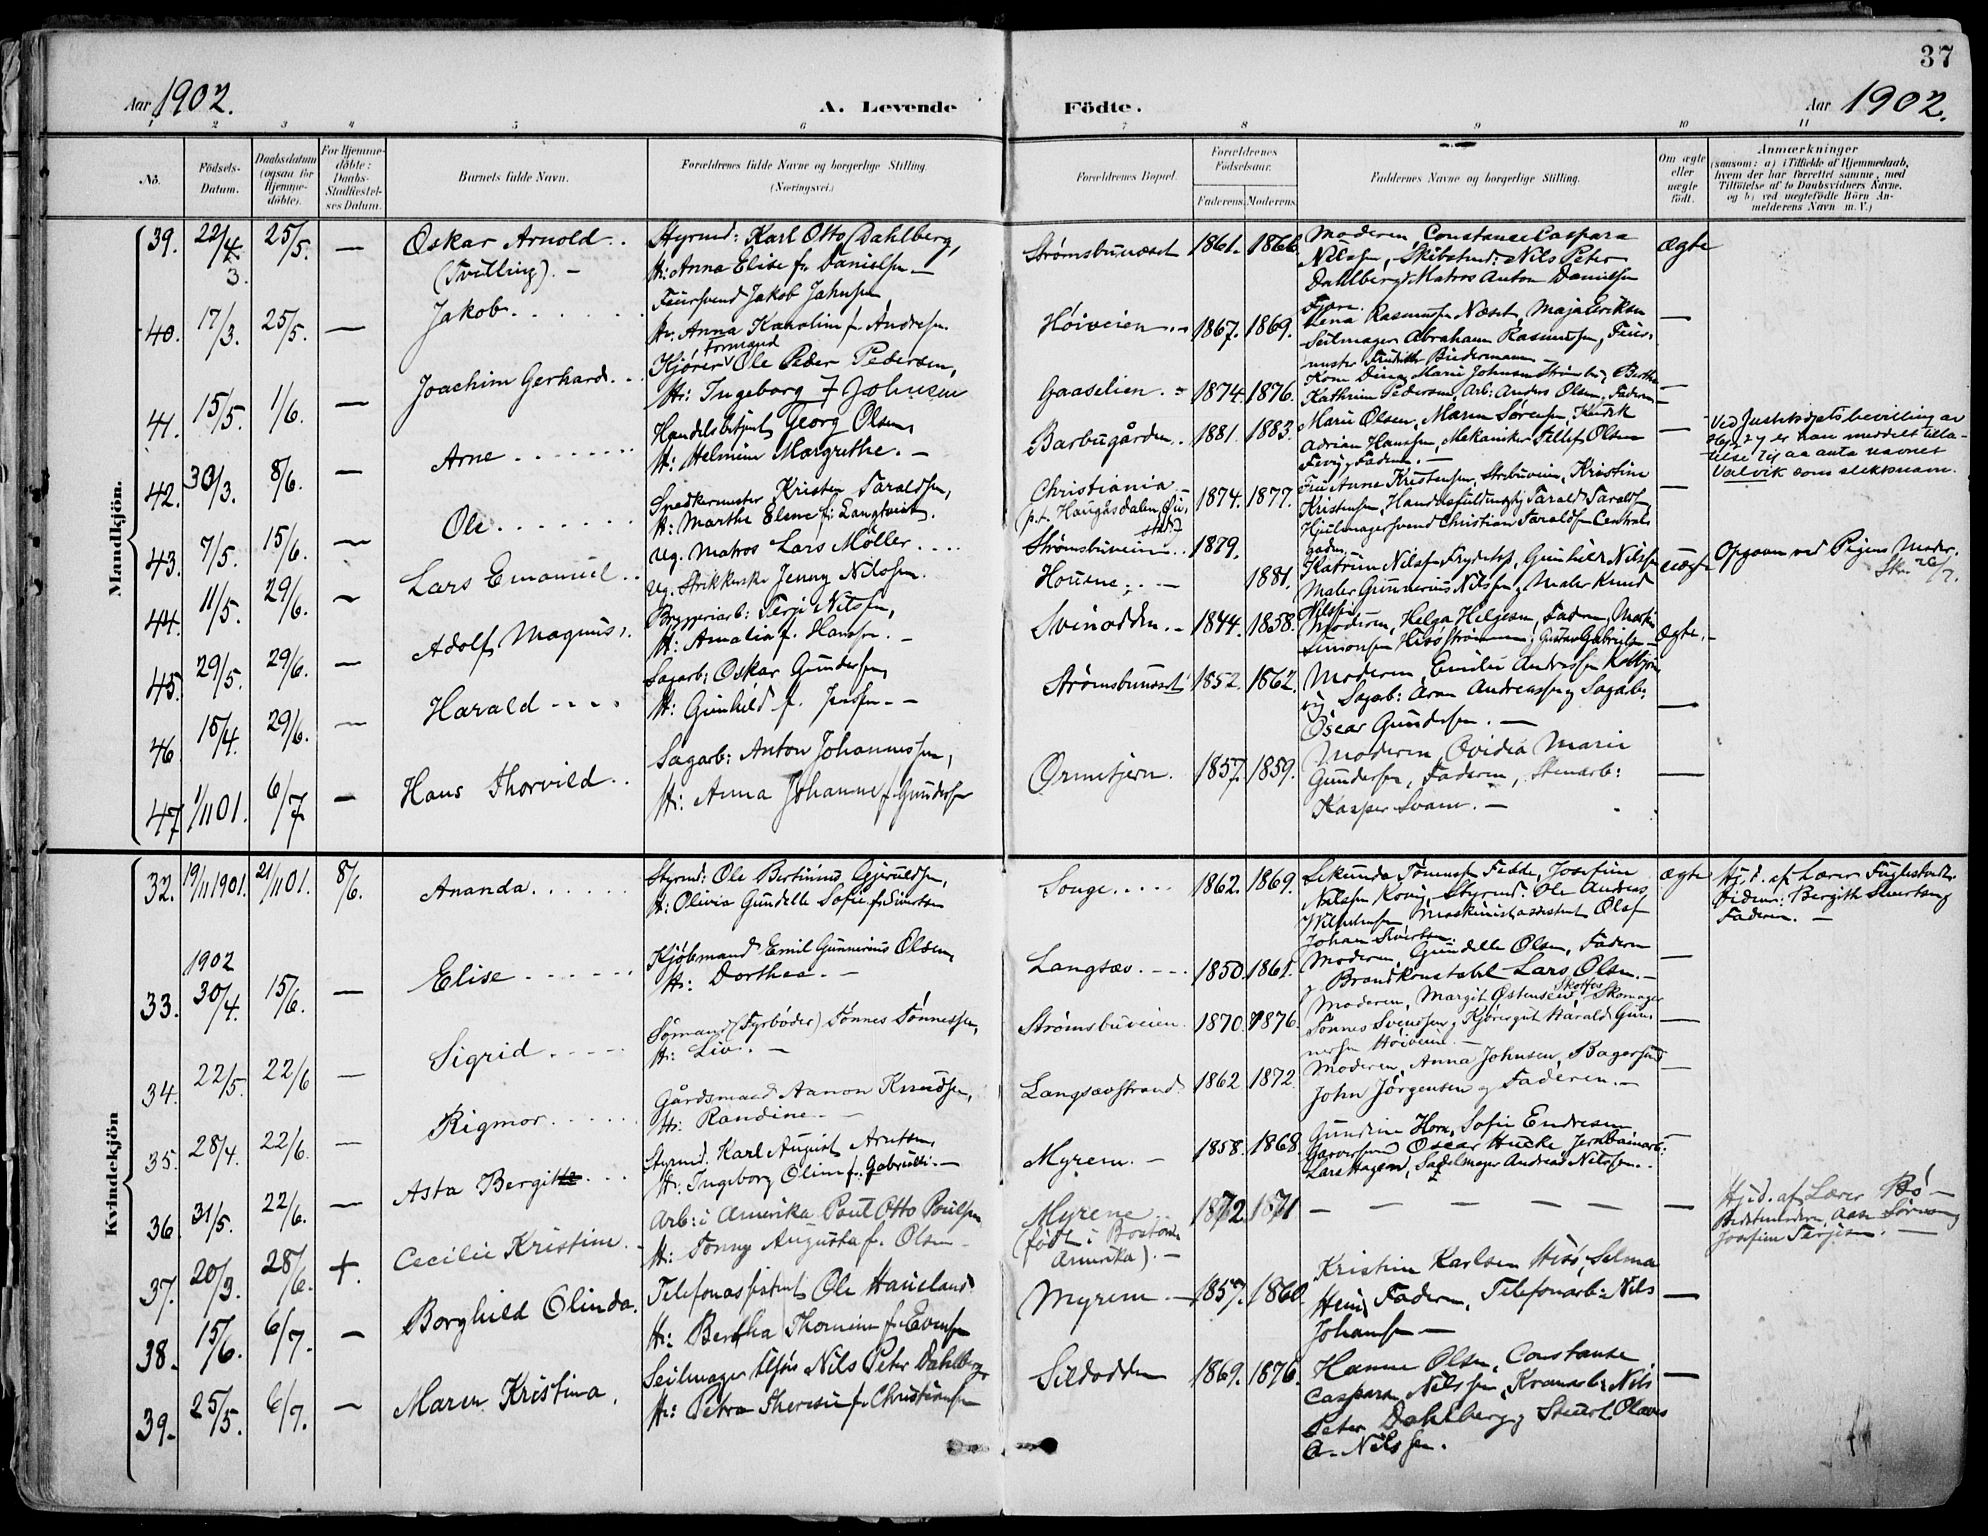 37
Aar 1902.
A. Levende Födte.
Aar 1902.
1 2 3 4 5 6 7 8 9 10 11
No.
Födsels-Datum.
Daabsdatum (ogsaa for Hjemme-döbte).
For Hjemme-döbte: Daabs-Stadfæstel-ses Datum.
Barnets fulde Navn.
Forældrenes fulde Navne og borgerlige Stilling. (Næringsvei.)
Forældrenes Bopæl.
Forældrenes Födselsaar.
Faderens. Moderens.
Faddernes Navne og borgerlige Stilling.
Om ægte eller uægte födt.
Anmærkninger
(saasom: a) i Tilfælde af Hjemmedaab,
hvem der har forrettet samme, med
Tilföielse af to Daabsvidners Navne,
og b) ved uegtefödte Börn An-
melderens Navn m. V.)
Mandkjön.
39. 22/4 25/5. — Oskar Arnold..
(Tvilling). —
Styrmd: Karl Otto Dahlberg,
H: Anna Elise f. Danielsen —
Strømsbunæset 1861. 1866.
Moderen Constance Caspara
Nilsen, Nils Peter
Dahlberg, Matros Anton Danielsen
ægte
40. 17/3. 25/5. — Jakob
Feiersvend Jakob Jahnsen
H: Anna Karoline f. Andresen.
Høiveien 1867. 1869.
Lena Rasmussen Næset, Maja Eriksen
Seilmager Abraham Rasmussen, Feier-
mester Biedermann —
41. 15/5. 1/6. — Joachim Gerhard
Formand
Kjører Ole Peder Pedersen,
H: Ingeborg f Johnsen
Gaaselien. 1874. 1876.
Kone Marie Johnsen Berthe
Kathrine Pedersen, Arb: Anders Olsen, Faderen
42. 30/3. 8/6. — Arne
Handelsbetjent Georg Olsen,
H: Helmine Margrethe. —
Barbugården 1881. 1883.
Marie Olsen, Maren Sørensen,
Adrian Hansen, Mekaniker Tellef Olsen
Fevig, Faderen. —
Ved Justitsdepts bevilling av
er han meddelt tilla-
telse til aa anta navnet
Valvik som slektsnavn.
43. 7/5. 15/6. — Ole
Snedkermester Kristen Taraldsen,
H: Marthe Elene f: Langkvist.
Christiania —
1874. 1877.
Fru Anne Kristensen, Strbuveien, Kristine
Kristensen, Tarald Taraldsen
Hjulmagersvend Christian Taraldsen Central-
gaden —
44. 11/5. 29/6. — Lars Emanuel
Ug. Matros Lars Møller
Ug. Strikkerske Jenny Nilssen.
Strømsbuveien 1879.
Housene 1881.
Katrine Nilsen Gunhild Nilssen
Maler Gunnerius Nilssen, Maler Knud
Nilssen
uægte
Opgaven ved Pigens Moder.
45. 29/5. 29/6. — Adolf Magnus.
Bryggeriarb: Terje Nilssen,
H: Amalia f. Hansen. —
Svinodden 1844. 1858.
Moderen, Helga Helgesen, Faderen, Martin
Simonsen Gustav Gabrielsen
ægte. —
46. 15/4. 29/6. — Harald
Sagarb: Oskar Gundersen
H: Gunhild f. Jensen. —
Strømsbunæset 1852. 1862.
Moderen Emilie Andreassen
Sagab: Aron Andreassen og Sagab:
Oscar Gundersen. —
47. 1/11 01. 6/7 — Hans Thorvild
Sagarb: Anton Johannessen,
H: Anna Johanne f. Gundersen
Ørnetjern. 1857. 1859.
Moderen Ovidia Marie
Gundersen, Faderen, Stenarb:
Kasper Svane. —
Kvindekjön
32. 19/11 1901. 21/11 01. 8/6. Ananda
Styrmd: Ole Bertinius Gjeruldsen,
H: Olivia Gundelle Sofie f. Sivertsen
Songe 1862. 1869.
Sekunda Tønnesen Fedde, Josefine
Nielsen Styrmd. Ole Andreas
Wilhelmsen Maskinistassistent Olaf
Johan Sivertsen.
ægte
Hj. d. af Lærer Fuglestvedt.
Vidner: Bergith Sivertsen og
Faderen. —
1902
33. 30/4. 15/6. — Elise
Kjøbmand Emil Gunnerius Olsen,
H: Dorthea. —
Langsæv. 1850. 1861.
Moderen, Gundelle Olsen, Faderen
Brandkonstabel Lars Olsen. —
34. 22/5. 22/6 — Sigrid
Sømand (Fyrbøder) Tønnes Tønnessen,
H: Liv. —
Strømsbuveien. 1870. 1876.
Moderen, Margit Østensen, Skomager
Tønnes Svendsen, Kjøregut Harald Gun-
nersen Høiveien. —
35. 28/4. 22/6. — Rigmor
Gårdsmand Aanon Knudsen,
H: Randine. —
Langsævstrand. 1862. 1872.
Moderen, Anna Johnsen, Bagersvend
John Jørgensen og Faderen. —
36. 31/5. 22/6. — Asta Bergit
Styrmd. Karl August Arntsen,
H: Ingeborg Oline f. Gabrielsen. —
Myrene. — 1858. 1868.
Gundine Horn, Sofie Endresen
Garversvend Oscar Hucke, Jernbanearb:
Lars Hagen, Sadelmager Andreas Nilssen.
37. 20/3. 28/6. +. Cecilie Kristine
Arb: i Amerika Poul Otto Poulsen
H: Tonny Augusta f. Olsen
Myrene
(født i Boston
Amerika). —
1872. 1871
Hj. d. af Lærer Bø —
Josefine Terjesen. —
38. 15/6. 6/7. — Borghild Olinda.
Telefonassistent Ole Haueland
H: Bertha Thomine f. Evensen
Myrene — 1857. 1860
Kristine Karlsen Hisø, Selma
Faderen, Telefonarb: Nils
Johansen —
39. 25/5. 6/7. — Maren Kristina.
Seilmager Nils Peter Dahlberg
H: Petra Theresie f. Christiansen
Sildodden 1869. 1876.
Hanne Olsen, Constanse
Caspara Nilssen, Kranarb: Nils
Peter Dahlberg, Stuert Olaves
A. Nilssen.